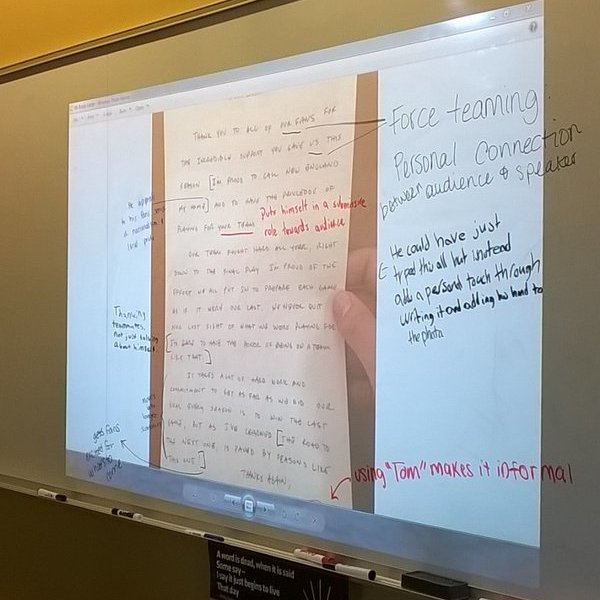 THANK YOU TO ALL OF OUR FANS FOR
THE INCREDIBLE SUPPORT YOU GAVE US THIS
SEASON [I'M PROUD TO CALL NEW ENGLAND
MY HOME] AND TO HAVE THE PRIVILEDGE OF
PLAYING FOR YOUR TEAM.
OUR TEAM FOUGHT HARD ALL YEAR, RIGHT
DOWN TO THE FINAL PLAY. I'M PROUD OF THE
EFFORT WE ALL PUT IN TO PREPARE EACH GAME
AS IF IT WERE OUR LAST. WE NEVER QUIT
NOR LOST SIGHT OF WHAT WE WERE PLAYING FOR.
[I'M LUCKY TO HAVE THE HONOR OF BEING ON A TEAM
LIKE THAT.]
IT TAKES A LOT OF HARD WORK AND
COMMITMENT TO GET AS FAR AS WE DID. OUR
GOAL EVERY SEASON IS TO WIN THE LAST
GAME, BUT AS I'VE LEARNED [THE ROAD TO
THE NEXT ONE, IS PAVED BY SEASONS LIKE
THIS ONE.]
THANKS AGAIN,
Puts himself in a submissive
role towards audience
Thanking
teammates,
not just talking
about himself.
gets fans
excited for
what's to
come
Force teaming
Personal Connection
between audience & speaker
He could have just
typed this all but instead
adds a personal touch through
writing it and adding his hand to
the photo
using "Tom" makes it informal
A word is dead, when it is said
Some say –
I say it just begins to live
That day